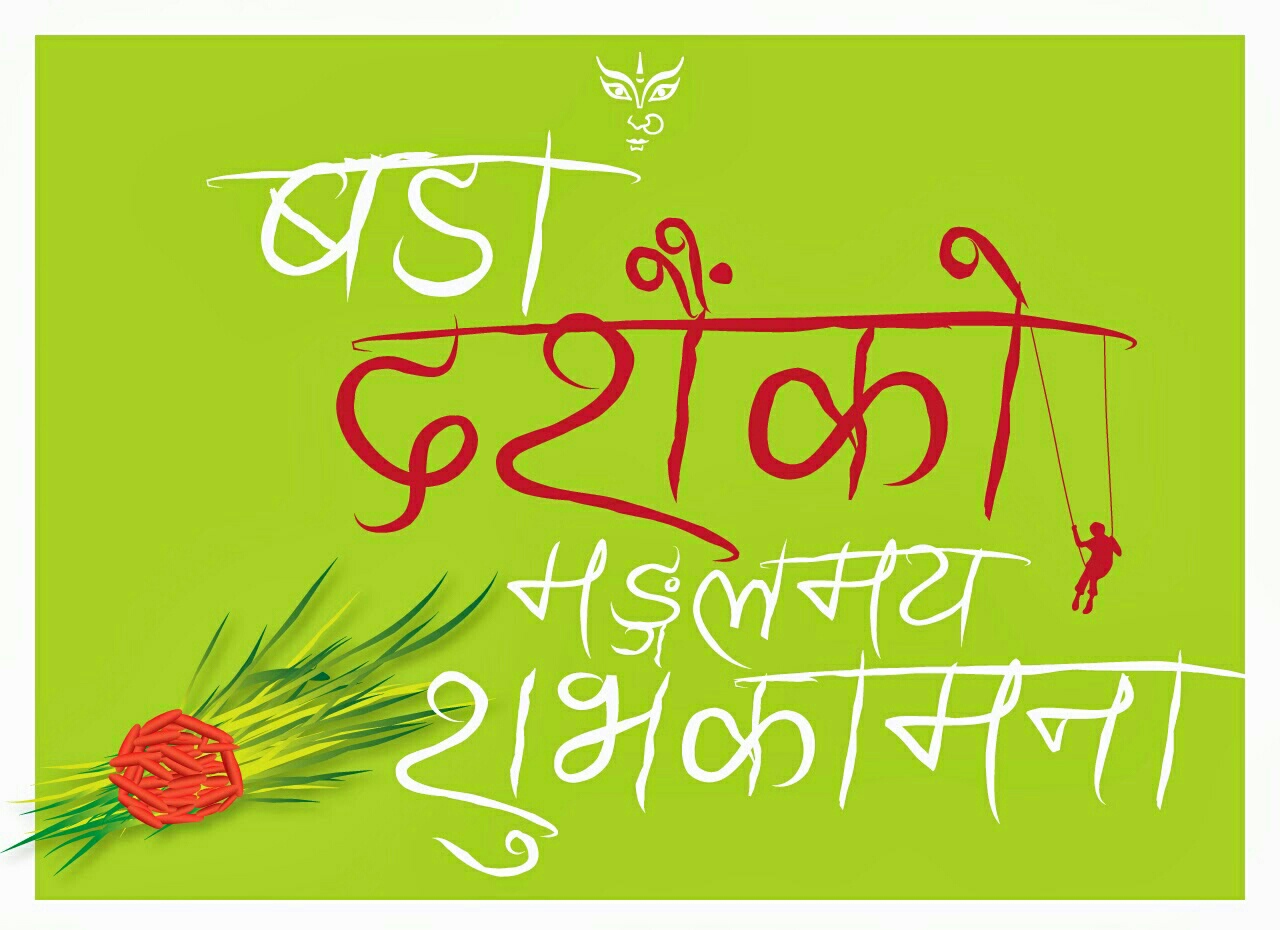 बडा
दशैंको
मङ्गलमय
शुभकामना